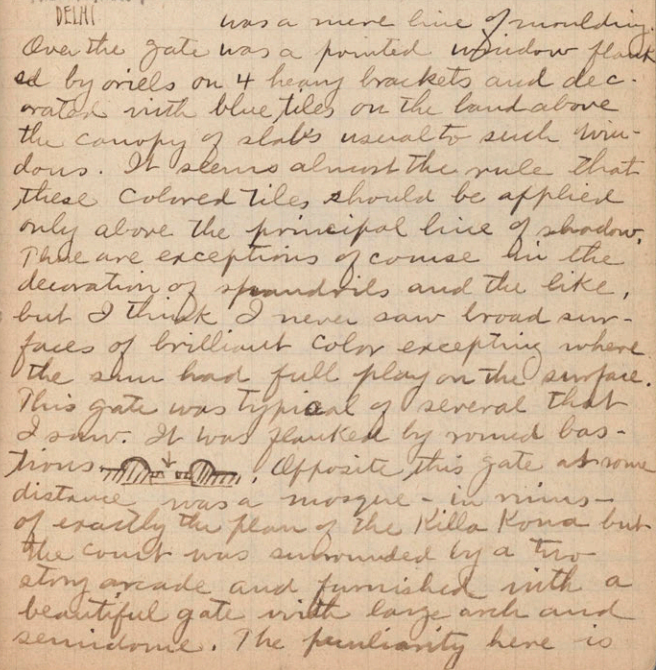 DELHI
was a mere line of moulding.
Over the gate was a pointed window flank
ed by oriels on 4 heavy brackets and dec-
orated with blue tiles on the band above
the canopy of slabs usual to such win-
dows. It seems almost the rule that
these colored tiles should be applied
only above the principal line of shadow.
There are exceptions of course in the
decoration of spandrils and the like,
but I think I never saw broad sur-
faces of brilliant color excepting where
the sun had full play on the surface.
This gate was typical of several that
I saw. It was flanked by round bas-
tions. Opposite this gate at some
distance was a mosque - in ruins -
of exactly the plan of the Killa Kona but
the court was surrounded by a two
story arcade and furnished with a
beautiful gate with large arch and
semidome. The peculiarity here is